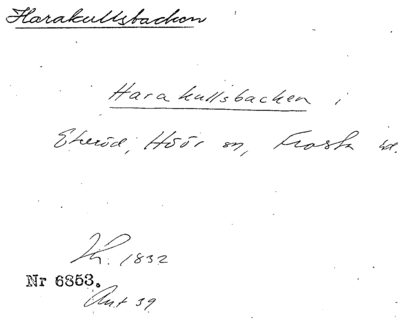 Harakullsbacken
Harakullsbacken i
Ekeröd, Höör sn, Frosta hd.
Th. 1832
Nr 6853.
Ant 39